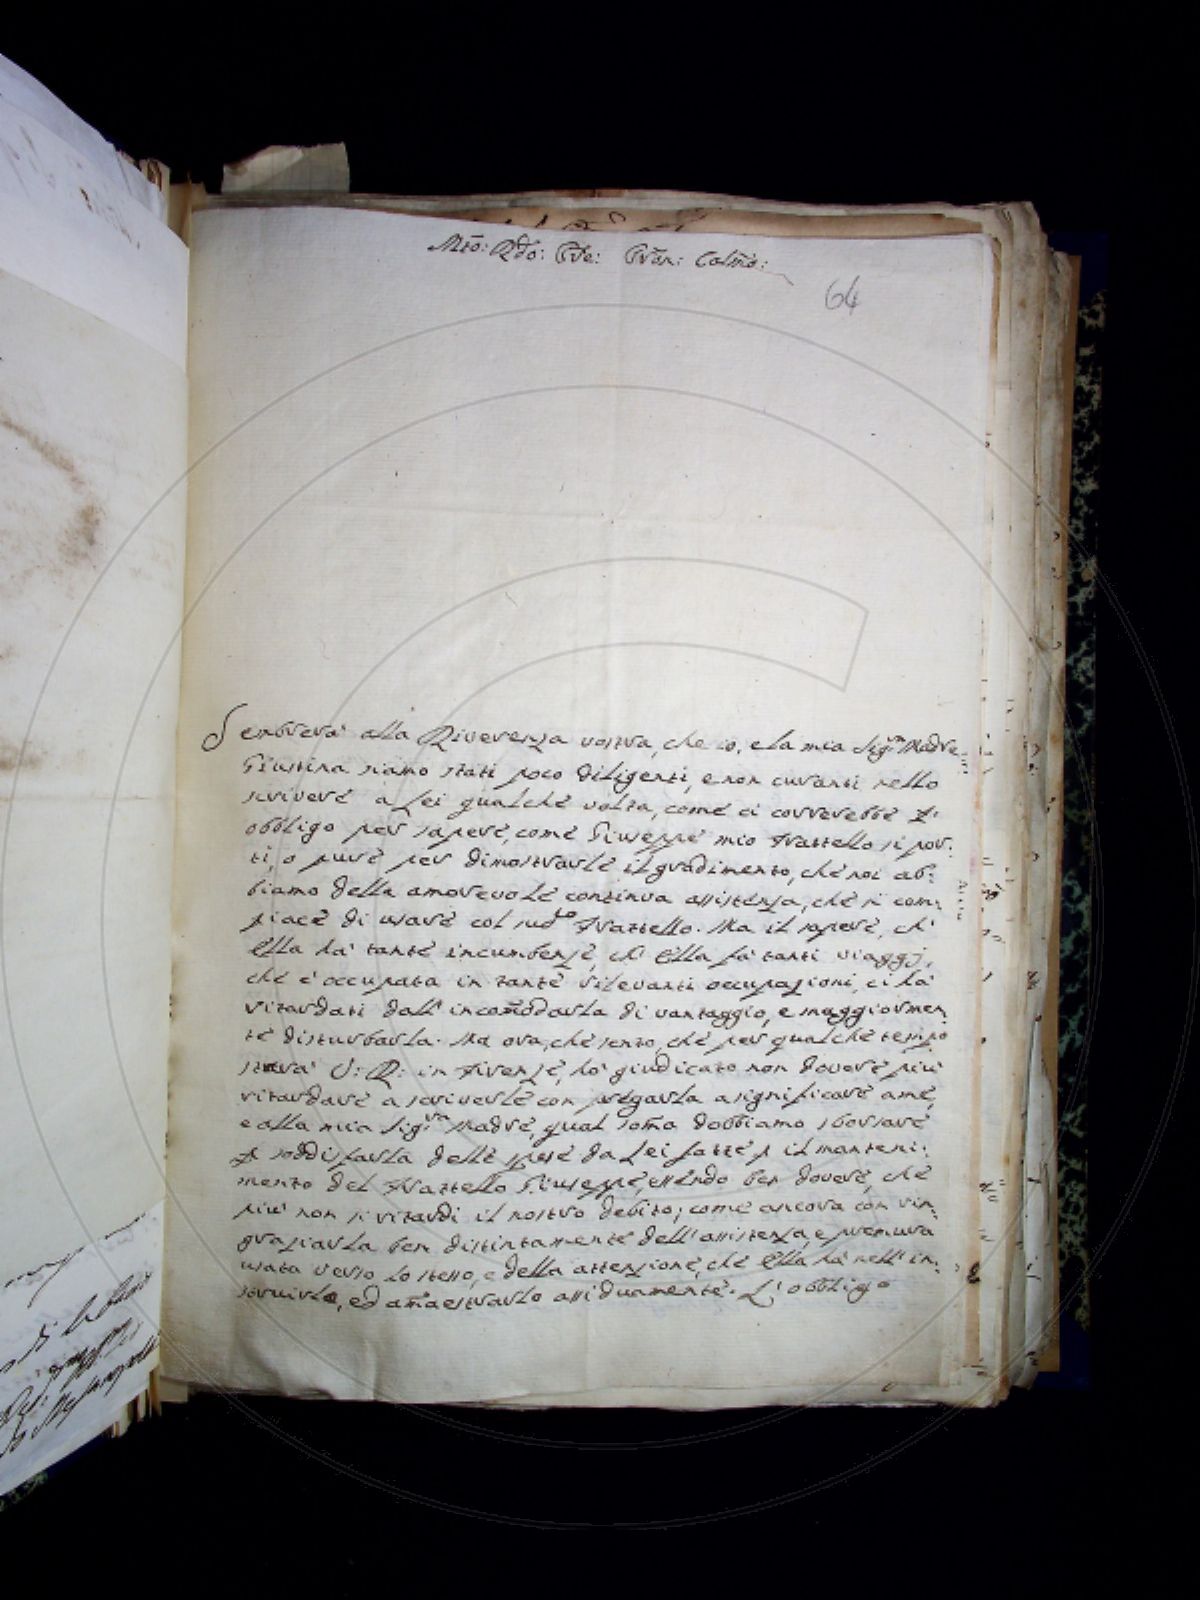 Mto: Rdo: Pre: Pron: Colmo:
64
Sembrerà alla Riverenza vostra, che io, e la mia Sigra Madre
Giustina siamo stati poco diligenti, e non curanti nello
scrivere a Lei qualche volta, come ci correrebbe l'
obbligo per sapere, come Giuseppe mio Frattello si por:
ti, o pure per dimostrarle il gradimento, che noi ab:
biamo della amorevole continua assistenza, che si com:
piace di usare col sudto Frattello. Ma il sapere, ch'
Ella hà tante incumbenze, ch' Ella fà tanti viaggj,
che è occupata in tante rilevanti occupazioni, ci hà
ritardati dall' incomodarla di vantaggio, e maggiormen
te disturbarla. Ma ora, che sento, che per qualche tempo
starà V: R: in Firenze, hò giudicato non dovere più
ritardare a scriverle con pregarla a significare a me,
e alla mia Sigra Madre, qual soma dobbiamo sborsare
p soddisfarla delle spese da Lei fatte p il manteni:
mento del Frattello Giuseppe, essendo ben dovere, che
più non si ritardi il nostro debito; come ancora con rin:
graziarla ben distintamente dell' assistenza, e premura
usata verso lo stesso, e della attenzione, che Ella hà nell' in:
struirlo, ed amaestrarlo assiduamente. L' obbligo